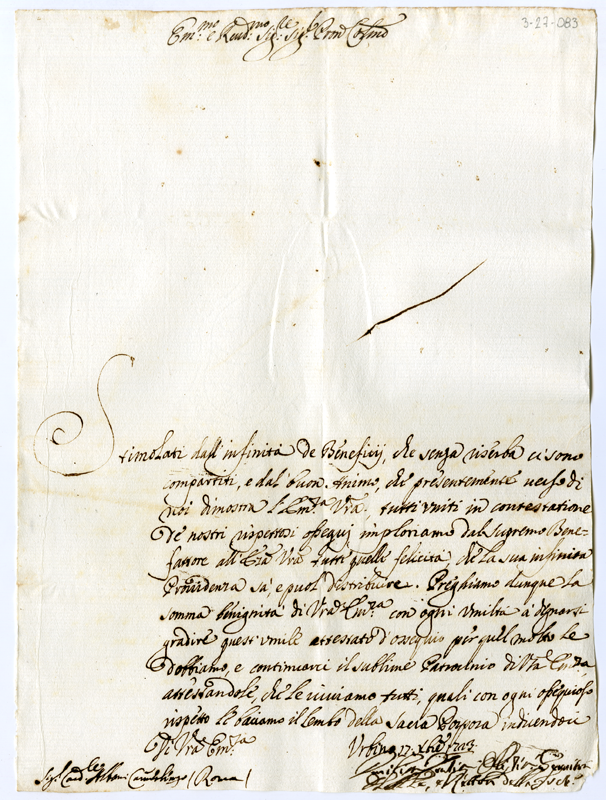 3-27-083
Em.mo e Rend.mo Sig.re Sig.re Pron Colmo
Stimolati dall'infinità de Beneficij, che senza riserba ci sono
compartiti, e dal buon Animo, che presentemente verso di
noi dimostra l'Em.za Vra. tutti uniti in contestatione
de nostri rispettosi ossequj imploriamo dal supremo Bene-
fattore all'Em.za Vra tutti quelle felicità che la sua infinita
Providenza sà, e puol distribuire. Preghiamo dunque la
somma benignità di Vra Em.za con ogni umiltà à degnarsi
gradire questi umile attestato d'ossequio per quel molto le
dobbiamo, e continuarci il sublime Patrocinio di Vra Em.za,
attestandole che le viviamo tutti, quali con ogni ossequioso
rispetto le baciamo il lembo della Sacra Porpora
Di Vra Em.za
Urbino 17 Xbre 1723
Rettori della
Sig.r Card.le Albani Camerlingo (Roma)